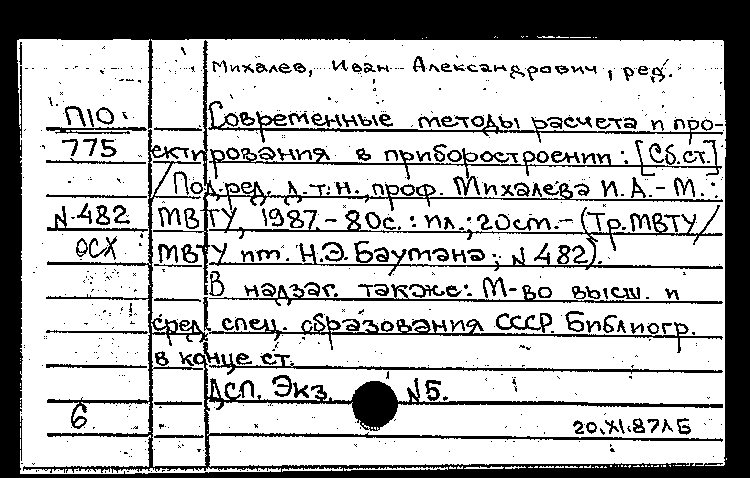 Михалев, Иван Александрович, ред.
П10
Современные методы расчета и про-
775 ектирования в приборостроении: [Сб.ст.]
/Под ред. д.т.н., проф. Михалева И.А.-М.:
N482 МВТУ, 1987.-80с.: ил.; 20см.-(Тр.МВТУ/
ОСХ МВТУ им. Н.Э.Баумана; N 482).
В надзаг. также: М-во высш. и
сред. спец. образования СССР. Библиогр.
в конце ст.
ДСП. Экз. N5.
6
20.XI.87ЛБ